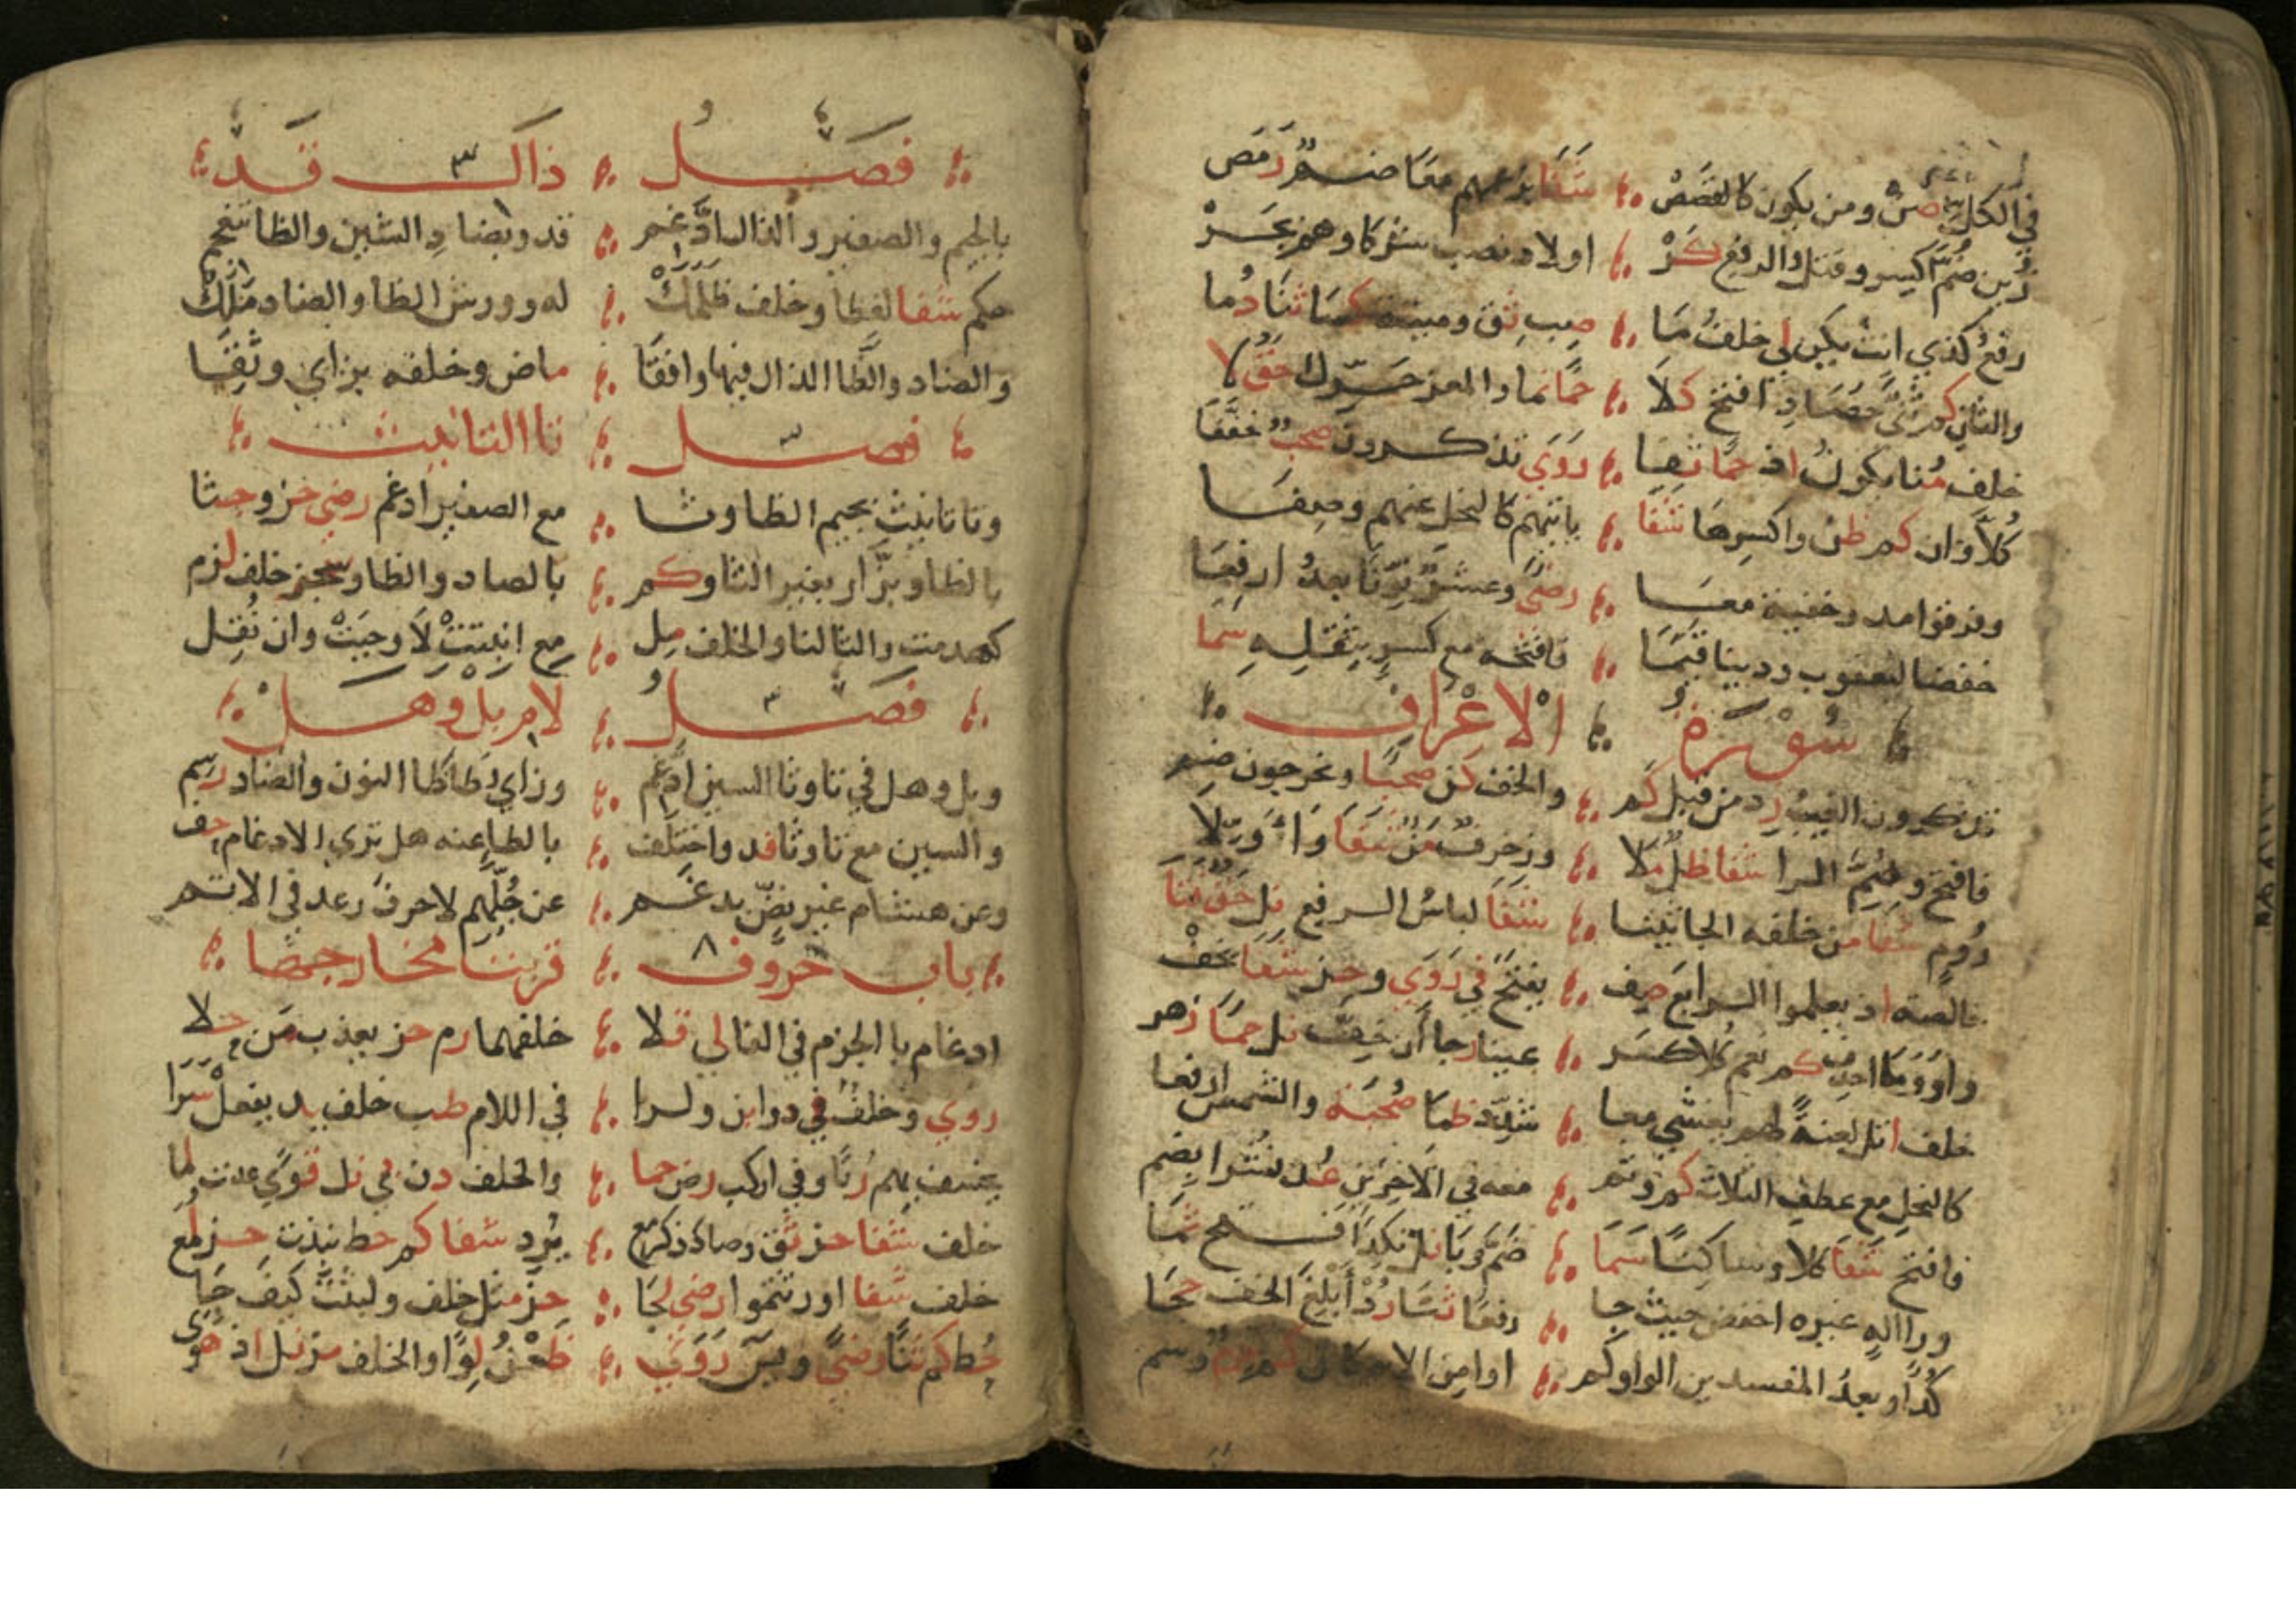 في الكل صن ومن يكون كالقصص شفا بزعمهم معا ضم رمص
زين ضم اكسر وقتل الرفع كر اولاد نصب شركاوهم بجر
رفع كذي انث يكن لي خلف ما صب ثق وميتة كسا ثنا دما
والثاني كم ثنى حصاد افتح كلا حما نما والمعز حرك حق لا
خلف منا يكون اذ حما نفيا روى تذكرون صحب خففا
كلا وان كم ظن واكسرها شفا ياتيهم كالنحل عنهم وصفا
وفرقوا امدد وخفيه معا رضى وعشر نونا بعد ارفعا
خفضا ليعقوب ودينا قيما فافتحه مع كسر بثقله سما
سورة الاعراف
تذكرون الغيب زد من قبل كم والخف كن صحبا وتخرجون ضم
فافتح وضم الرا شفا ظل ملا وزخرف من شفا واولا
روم شفا من خلفه الجاثيه شفا لباس الرفع نل حق فتا
خالصة اذ يعلموا الرابع صف يفتح في روى وحز شفا يخف
واو وما احذف كم نعم كلا كسر عينا رجا أن خف نل حما زهر
خلف اتل لعنة لهم يغشي معا شدد ظما صحبة والشمس ارفعا
كالنحل مع عطف الثلاث كم وثم معه في الاخرين عد نشرا يضم
فافتح شفا كلا وساكنا سما ضم وبا نل نكدا فتح ثما
ورا اله غيره اخفض حيث جا رفعا ثنا رد أبلغ الخف حجا
كلا وبعد المفسدين الواو كم اوامن الاسكان كم حرم وسم
فصل ذال قد
بالجيم والصفير والذال ادغم قد وبضاد الشين والظا تنعجم
حكم شفا لفظا وخلف ظلمك له وورش الظا والضاد ملك
والضاد والظا الذال فيها وافقا ماض وخلفه بزاي وثقا
فصل تا التانيث
وتا تانيث بجيم الظا وثا مع الصفير ادغم رضي حز وجثا
بالظا وبزار بغير الثا وكم بالصاد والظا وسجز خلف لزم
كهدمت والثا لنا والخلف مل مع انبتت لا وجبت وان نقل
فصل لام بل وهل
وبل وهل في تا وثا السين ادغم وزاي طا ظا النون والضاد رسم
والسين مع تا وثا فد واختلف بالطا عنه هل ترى الادغام حف
وعن هشام غير نض يدغم عن جلهم لا حرف رعد في الاتم
باب حروف قربت مخارجها
ادغام با الجزم في الفا لي قلا خلفهما رم حز يعذب من حلا
روي وخلف في دوا بن ولرا في اللام طب خلف يد يفعل سرا
يخسف بهم ربا وفي اركب رض حما والخلف دن بي نل قوى عذت لما
خلف شفا حز ثق وصاد ذكر مع يرد شفا كم حط نبذت حز لمع
خلف شفا اورثتموا رضي لجا حز مثل خلف ولبثت كيف جا
حط كم ثنا رضى ويس روى ظعن لوا والخلف مز نل اذ هوى